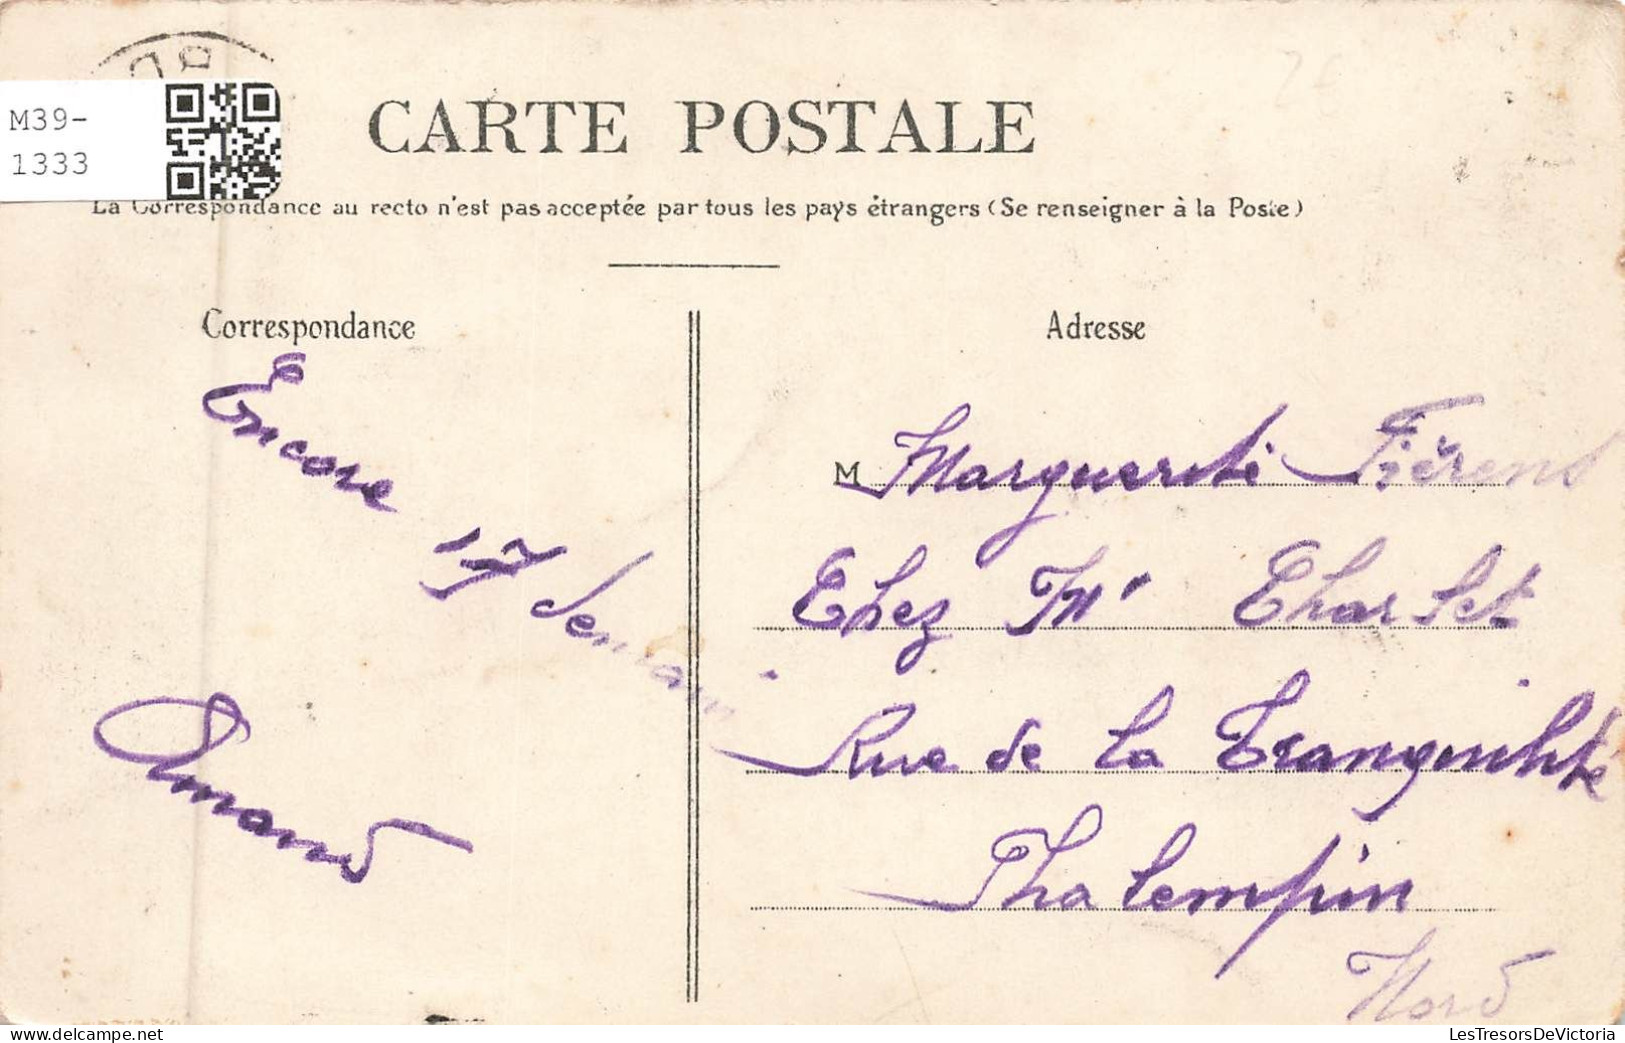 M39-
1333
CARTE POSTALE
La Correspondance au recto n'est pas acceptée par tous les pays étrangers (Se renseigner à la Poste)
Correspondance
Encore 17 demain
Armand
Adresse
M Marguerite Fiérens
Chez Mr Charlet
Rue de la Tranquilité
Phalempin
Nord
LesTresorsDeVictoria